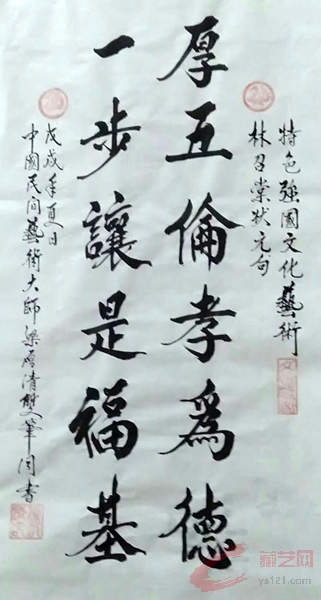 特色强國文化藝術
林召棠狀元句
厚五倫孝爲德
一步讓是福基
戊戌年夏日
中國民间藝術大師梁厚清雙筆同書
藏艺网
ya121.com